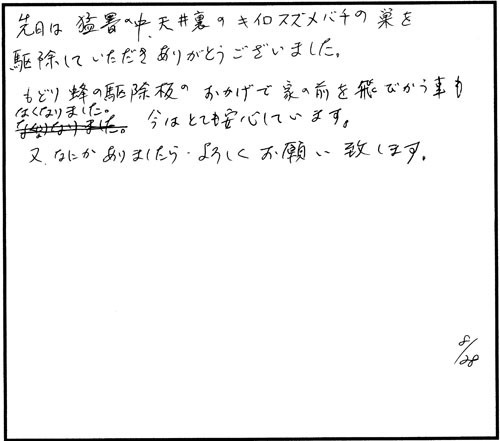 先日は猛暑の中、天井裏のキイロスズメバチの巣を
駆除していただきありがとうございました。
もどり蜂の駆除板のおかげで家の前を飛びかう事も
なくなりました。
今はとても安心しています。
又、なにかありましたら、よろしくお願い致します。
8/28